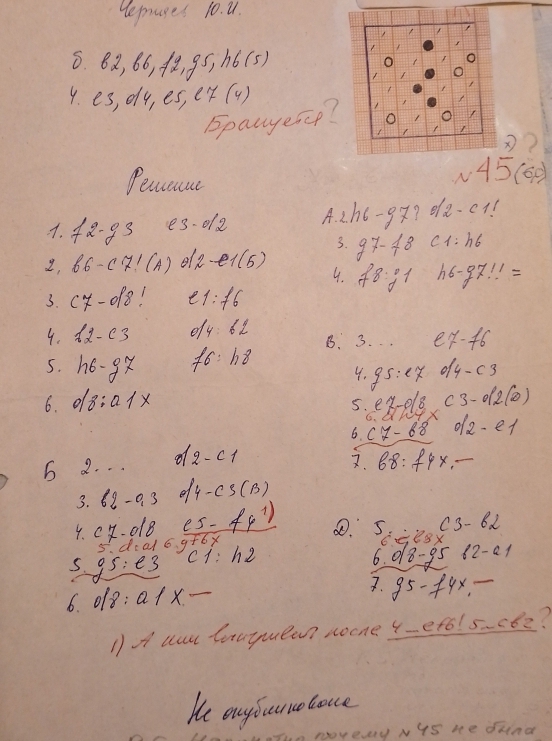 Черняев Ю.И.
б. b2, b6, f2, g5, h6 (5)
ч. e3, d4, e5, e7 (4)
Бракуется?
?
№45 (б,с)
Решение
1. f2-g3 e3-d2
2. b6-c7! (А) d2-e1 (Б)
3. c7-d8! e1:f6
4. b2-c3 d4:b2
5. h6-g7 f6:h8
6. d8:a1 x
А. 2. h6-g7? d2-c1!
3. g7-f8 c1:h6
4. f8:g1 h6-g7!! =
Б 2... d2-c1
3. b2-a3 d4-c3 (В)
4. c7-d8 e5-f4 1)
5. d:a1 6. g7:b x
5. g5:e3 c1:h2
6. d8:a1 x. —
В. 3... e7-f6
4. g5:e7 d4-c3
5. e7-d8 c3-d2 (Д)
6. c7-b8 d2-e1
7. b8:f4 x. —
Д. 5. ... c3-b2
6. d8-g5 b2-a1
7. g5-f4 x. —
1) А как выигрывать после 4...ef6! 5...cb2?
Не опубликована
почему №45 не была